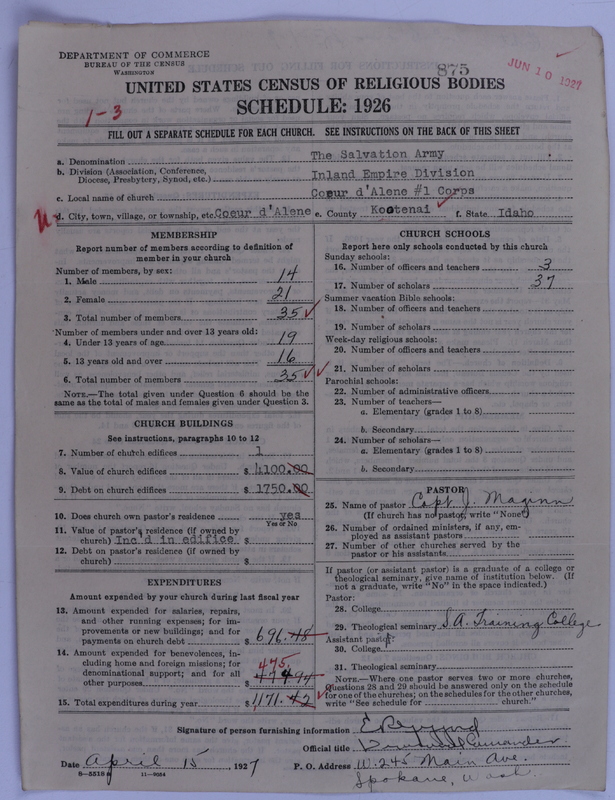 DEPARTMENT OF COMMERCE
BUREAU OF THE CENSUS
WASHINGTON
875
JUN 10 1927
UNITED STATES CENSUS OF RELIGIOUS BODIES
SCHEDULE: 1926
1-3
FILL OUT A SEPARATE SCHEDULE FOR EACH CHURCH. SEE INSTRUCTIONS ON THE BACK OF THIS SHEET
a. Denomination The Salvation Army
b. Division (Association, Conference, Diocese, Presbytery, Synod, etc.) Inland Empire Division
c. Local name of church Coeur d'Alene #1 Corps
d. City, town, village, or township, etc. Coeur d'Alene e. County Kootenai f. State Idaho
MEMBERSHIP
Report number of members according to definition of
member in your church
Number of members, by sex:
1. Male 14
2. Female 21
3. Total number of members 35
Number of members under and over 13 years old:
4. Under 13 years of age 19
5. 13 years old and over 16
6. Total number of members 35
NOTE.—The total given under Question 6 should be
same as the total of males and females given under Question 3.
CHURCH BUILDINGS
See instructions, paragraphs 10 to 12
7. Number of church edifices 1
8. Value of church edifices $ 4100.00
9. Debt on church edifices $ 1750.00
10. Does church own pastor's residence? yes
Yes or No
11. Value of pastor's residence (if owned by
church) Inc'd in edifice $
12. Debt on pastor's residence (if owned by
church) $
EXPENDITURES
Amount expended by your church during last fiscal year
13. Amount expended for salaries, repairs,
and other running expenses; for im-
provements or new buildings; and for
payments on church debt $ 696.48
14. Amount expended for benevolences, in-
cluding home and foreign missions; for
denominational support; and for all
other purposes $ 475.
474 94
15. Total expenditures during year $ 1171.42
CHURCH SCHOOLS
Report here only schools conducted by this church
Sunday schools:
16. Number of officers and teachers 3
17. Number of scholars 37
Summer vacation Bible schools:
18. Number of officers and teachers
19. Number of scholars
Week-day religious schools:
20. Number of officers and teachers
21. Number of scholars
Parochial schools:
22. Number of administrative officers
23. Number of teachers—
a. Elementary (grades 1 to 8)
b. Secondary
24. Number of scholars—
a. Elementary (grades 1 to 8)
b. Secondary
PASTOR
25. Name of pastor Capt. J. Maginn
(If church has no pastor, write "None")
26. Number of ordained ministers, if any, em-
ployed as assistant pastors
27. Number of other churches served by the
pastor or his assistants
If pastor (or assistant pastor) is a graduate of a college or
theological seminary, give name of institution below. (If
not a graduate, write "No" in the space indicated.)
Pastor:
28. College
29. Theological seminary S.A. Training College
Assistant pastor:
30. College
31. Theological seminary
NOTE.—Where one pastor serves two or more churches,
Questions 28 and 29 should be answered only on the schedule
for one of the churches; on the schedules for the other churches,
write "See schedule for church."
Signature of person furnishing information
Official title Commander
Date April 15, 1927 P. O. Address W. 245 Main Ave.
8-5518 11-9664 Spokane, Wash.